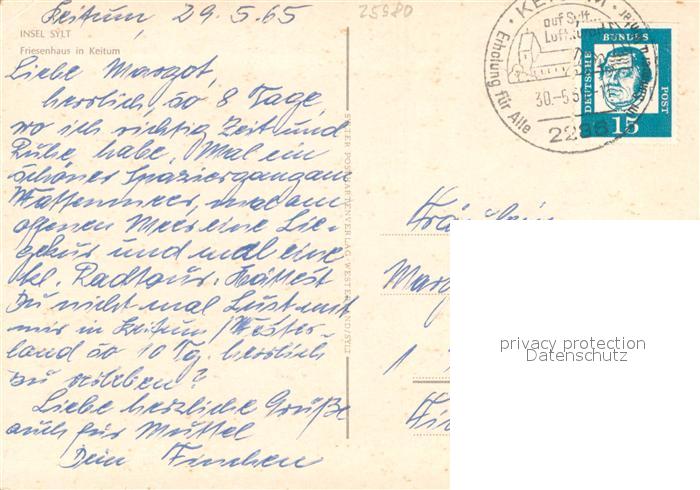 Keitum, 29.5.65
25980
INSEL SYLT
Friesenhaus in Keitum
Liebe Margot,
herrlich, so 8 Tage,
wo ich richtig Zeit und
Ruhe habe. Mal ein
schöner Spaziergang am
Wattenmeer, mal am
offenen Meer eine Lie-
gekur und mal eine
kl. Radtour. Hättest
Du nicht mal Lust mit
mir in Keitum/Wester-
land so 10 Tg. herrlich
zu erleben?
Liebe herzliche Grüße
auch für Muttel
Dein Finchen
SYLTER POSTKARTENVERLAG WESTERLAND/SYLT
KEITUM
auf Sylt
Luftkurort
30.-5.
Erholung für Alle
DEUTSCHE
BUNDES
POST
15
Fräulein
Marg
1
privacy protection
Datenschutz